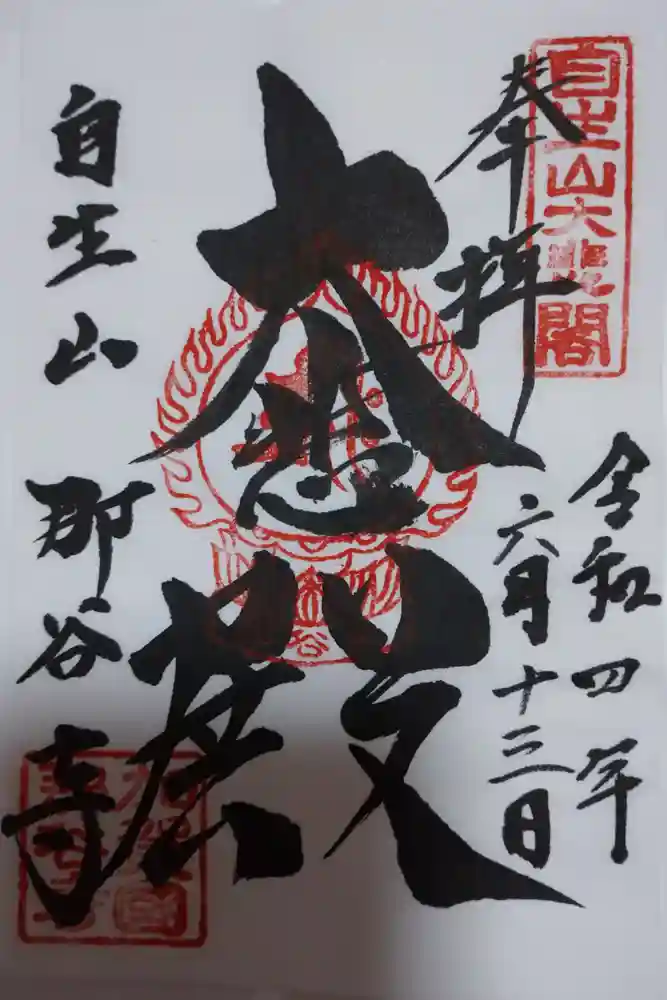 自生山大悲閣
奉拝
令和四年
六月十三日
大悲殿
自生山
那谷寺